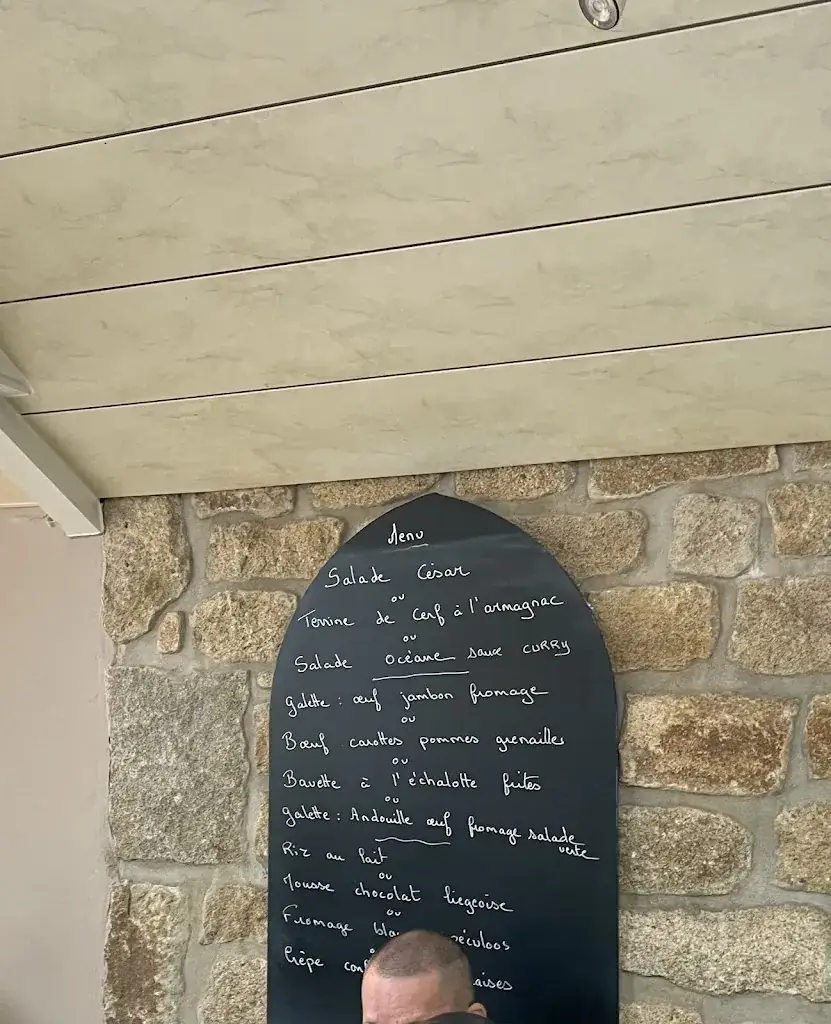 Menu
Salade César
ou
Terrine de Cerf à l'armagnac
ou
Salade Océane sauce CURRY
galette : œuf jambon fromage
ou
Bœuf carottes pommes grenailles
ou
Bavette à l'échalotte frites
ou
galette : Andouille œuf fromage salade
verte
Riz au lait
ou
Mousse chocolat liegeoise
ou
Fromage
Crêpe